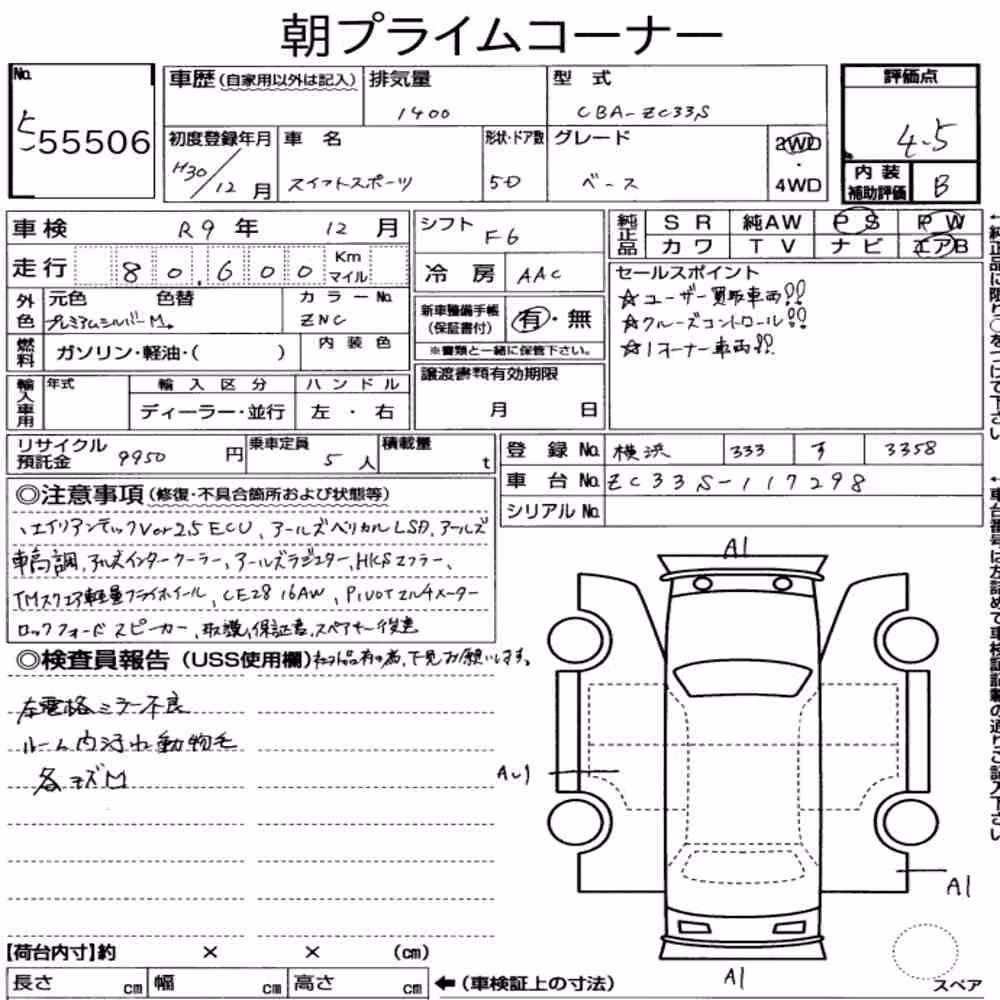 朝プライムコーナー
No.
と 55506
車歴 (自家用以外は記入)
排気量
1400
型 式
CBA-ZC33S
評価点
4.5
内 装
補助評価
B
初度登録年月
H30/12 月
車 名
スイフトスポーツ
形状・ドア数
5D
グレード
ベース
2WD
・
4WD
車検 R9 年 12 月
走行 80,600 Km マイル
外色
元色 色替
プレミアムシルバーM
カラーNo.
ZNC
燃料
ガソリン・軽油・( )
内 装 色
輸入車用
年式
輸 入 区 分
ディーラー・並行
ハ ン ド ル
左 ・ 右
シフト F6
冷 房 AAC
新車整備手帳
(保証書付)
有・無
※書類と一緒に保管下さい。
譲渡書類有効期限
月 日
純正品
S R 純AW P S P W
カワ T V ナビ エアB
セールスポイント
☆ユーザー買取車両!!
☆クルーズコントロール!!
☆1オーナー車両!!
←純正品に限り○をつけて下さい
リサイクル
預託金
9950 円
乗車定員
5 人
積載量
t
登 録 No. 横浜 333 す 3358
車 台 No. ZC33S-117298
シリアル No.
←車台番号は左詰めで車検証記載の通りご記入下さい
◎注意事項 (修復・不具合箇所および状態等)
、エイリアンテックVer2.5 ECU、アールズヘリカルLSD、アールズ
車高調、アールズインタークーラー、アールズラジエター、HKSマフラー、
TMスクエア軽量フライホイール、CE28 16AW、PIVOTマルチメーター
ロックフォードスピーカー、取説、保証書、スペアキー後送
◎検査員報告 (USS使用欄) ネット品有の為、下見お願いします。
左電格ミラー不良
ルーム内汚れ動物毛
各キズM
A1
A1
A1
【荷台内寸】約 × × (cm)
長さ cm 幅 cm 高さ cm
←(車検証上の寸法)
スペア